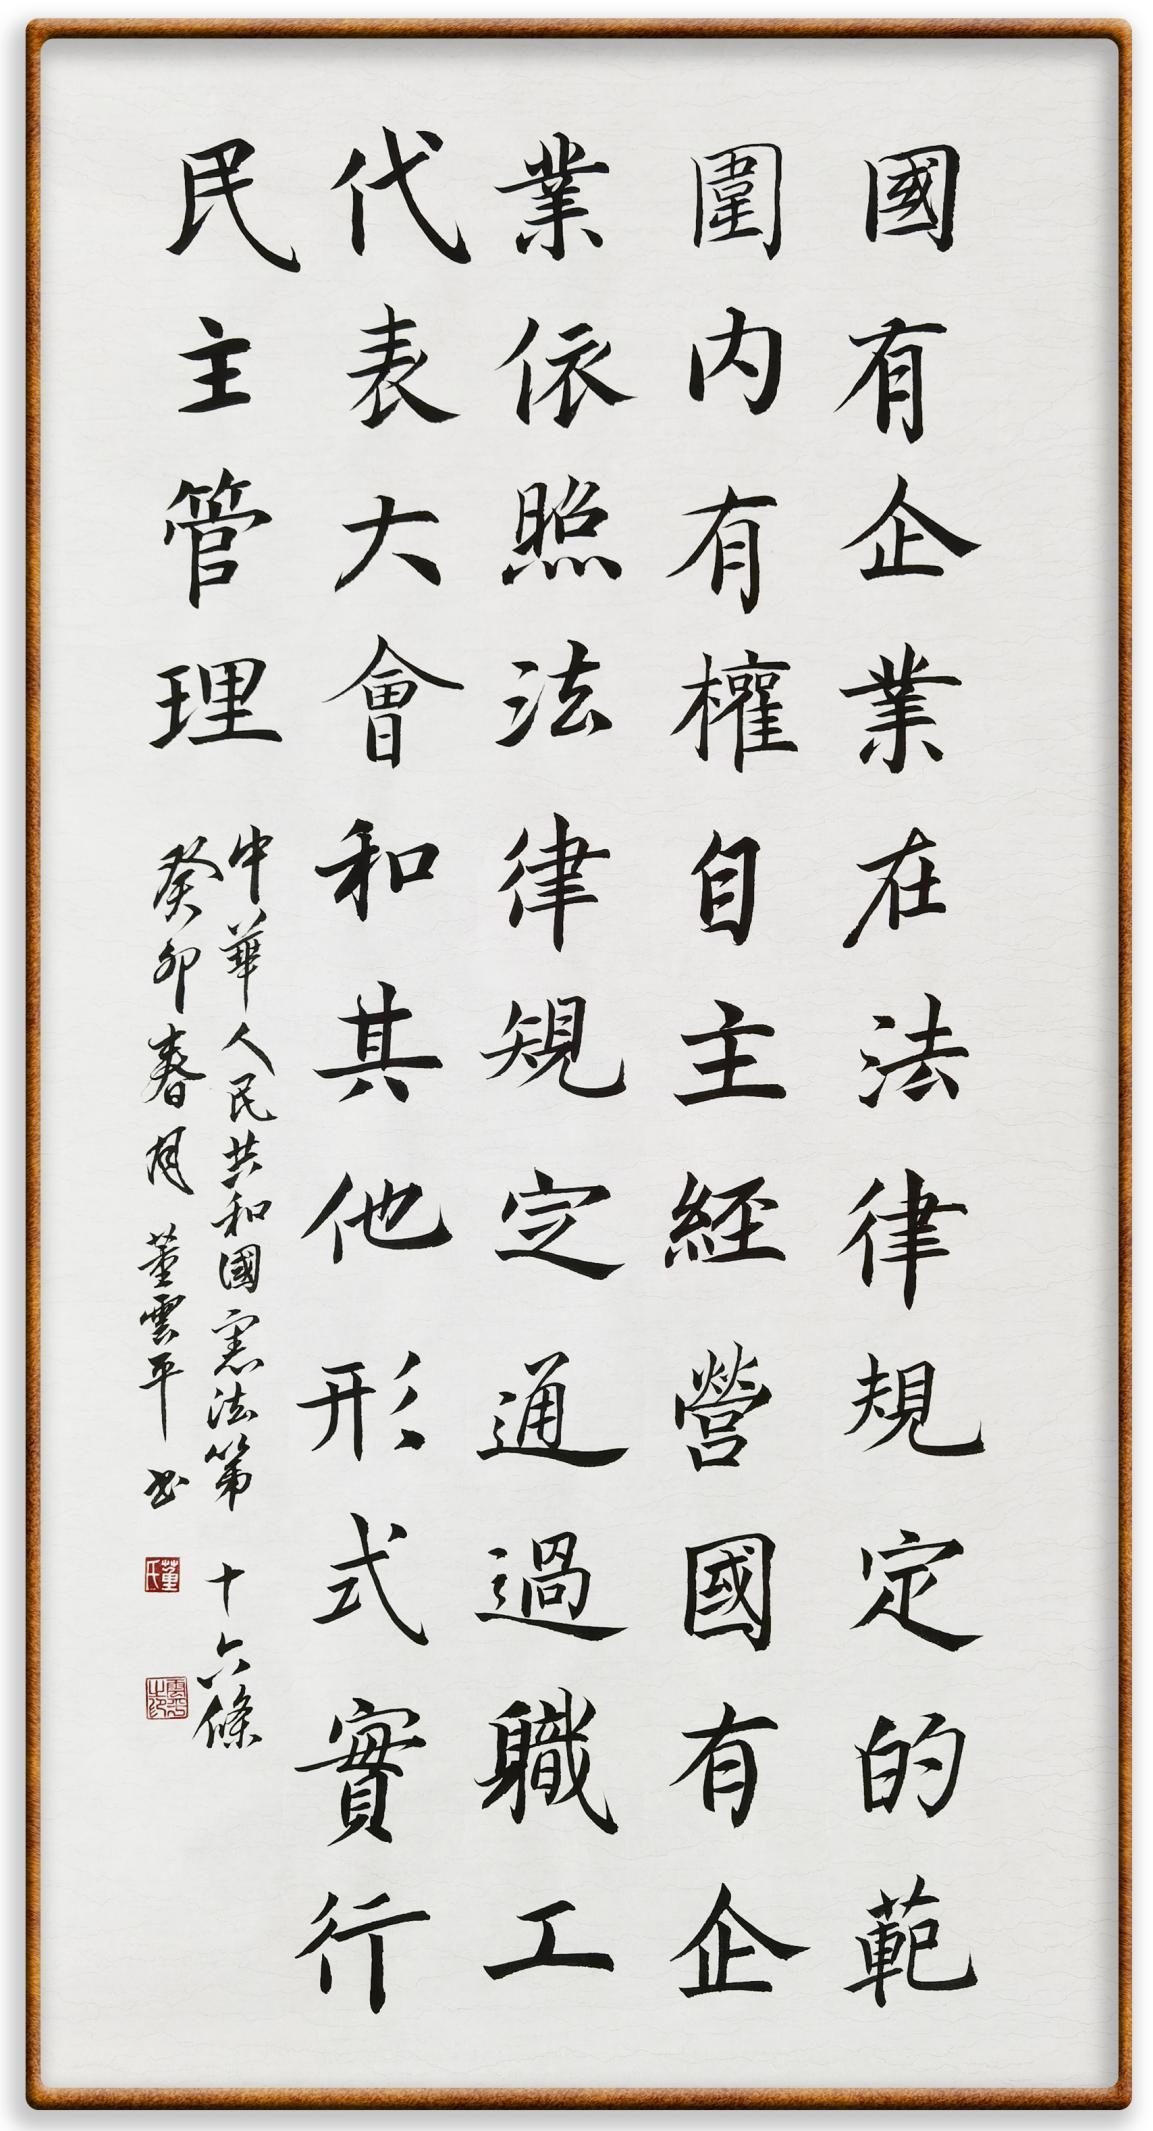 國有企業在法律規定的範
圍内有權自主經營國有企
業依照法律規定通過職工
代表大會和其他形式實行
民主管理
中華人民共和國憲法第十六條
癸卯春月董雲平书
董氏
雲平之印